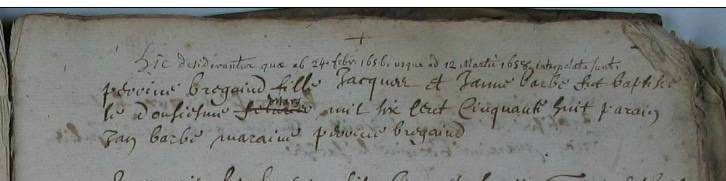 Hic desiderantur quae ab 24 febr. 1656. usque ad 12 Martii 1658 interpolata sunt.
perrine bregaind fille Jacques et Janne barbe fut baptisée
le dousiesme mars mil six cent cinquante huit parain
Jan barbe maraine perrine bregaind